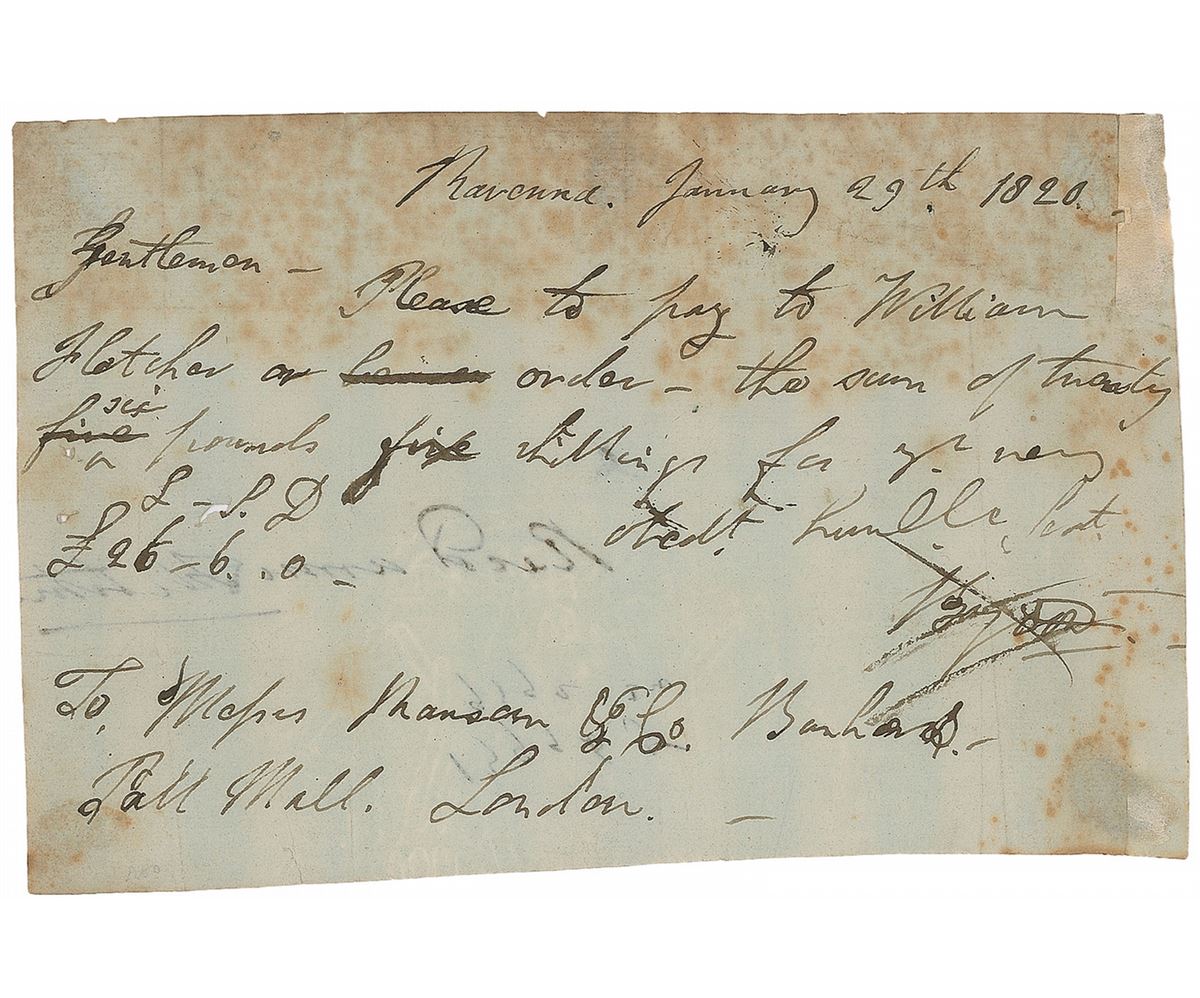 Ravenna. January 29th 1820.
Gentlemen –
Please to pay to William
Fletcher or bearer order – the sum of twenty
six
five pounds five shillings for yr. very
L – S. D
obedt. humble Servt.
£26 – 6. . 0 –
Byron
To, Messrs Ransom & Co. Bankers. –
Pall Mall. London. –